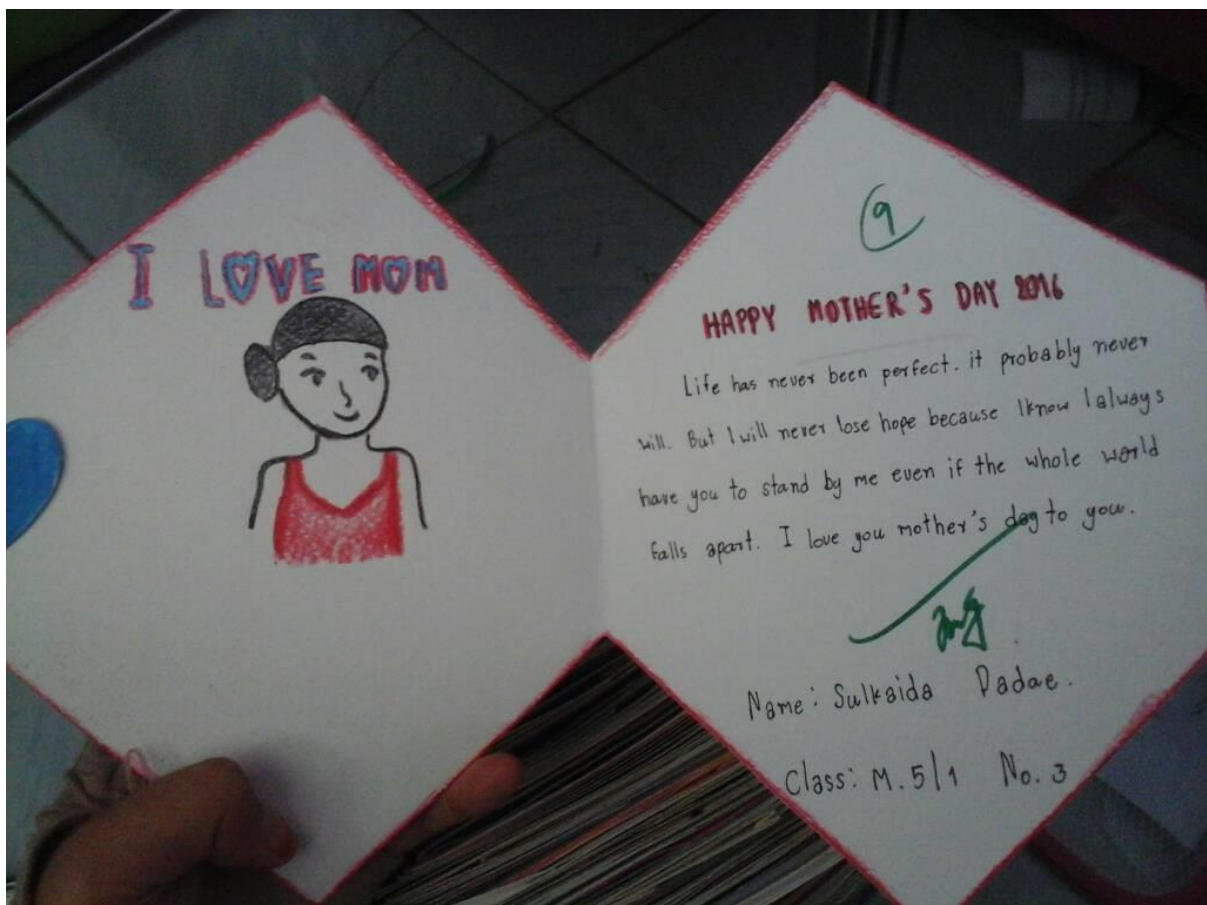 I LOVE MOM
9
HAPPY MOTHER'S DAY 2016
Life has never been perfect. it probably never
will. But I will never lose hope because I know I always
have you to stand by me even if the whole world
falls apart. I love you mother's day to you.
Name: Sulkaida Dadae.
Class: M.5/1 No.3